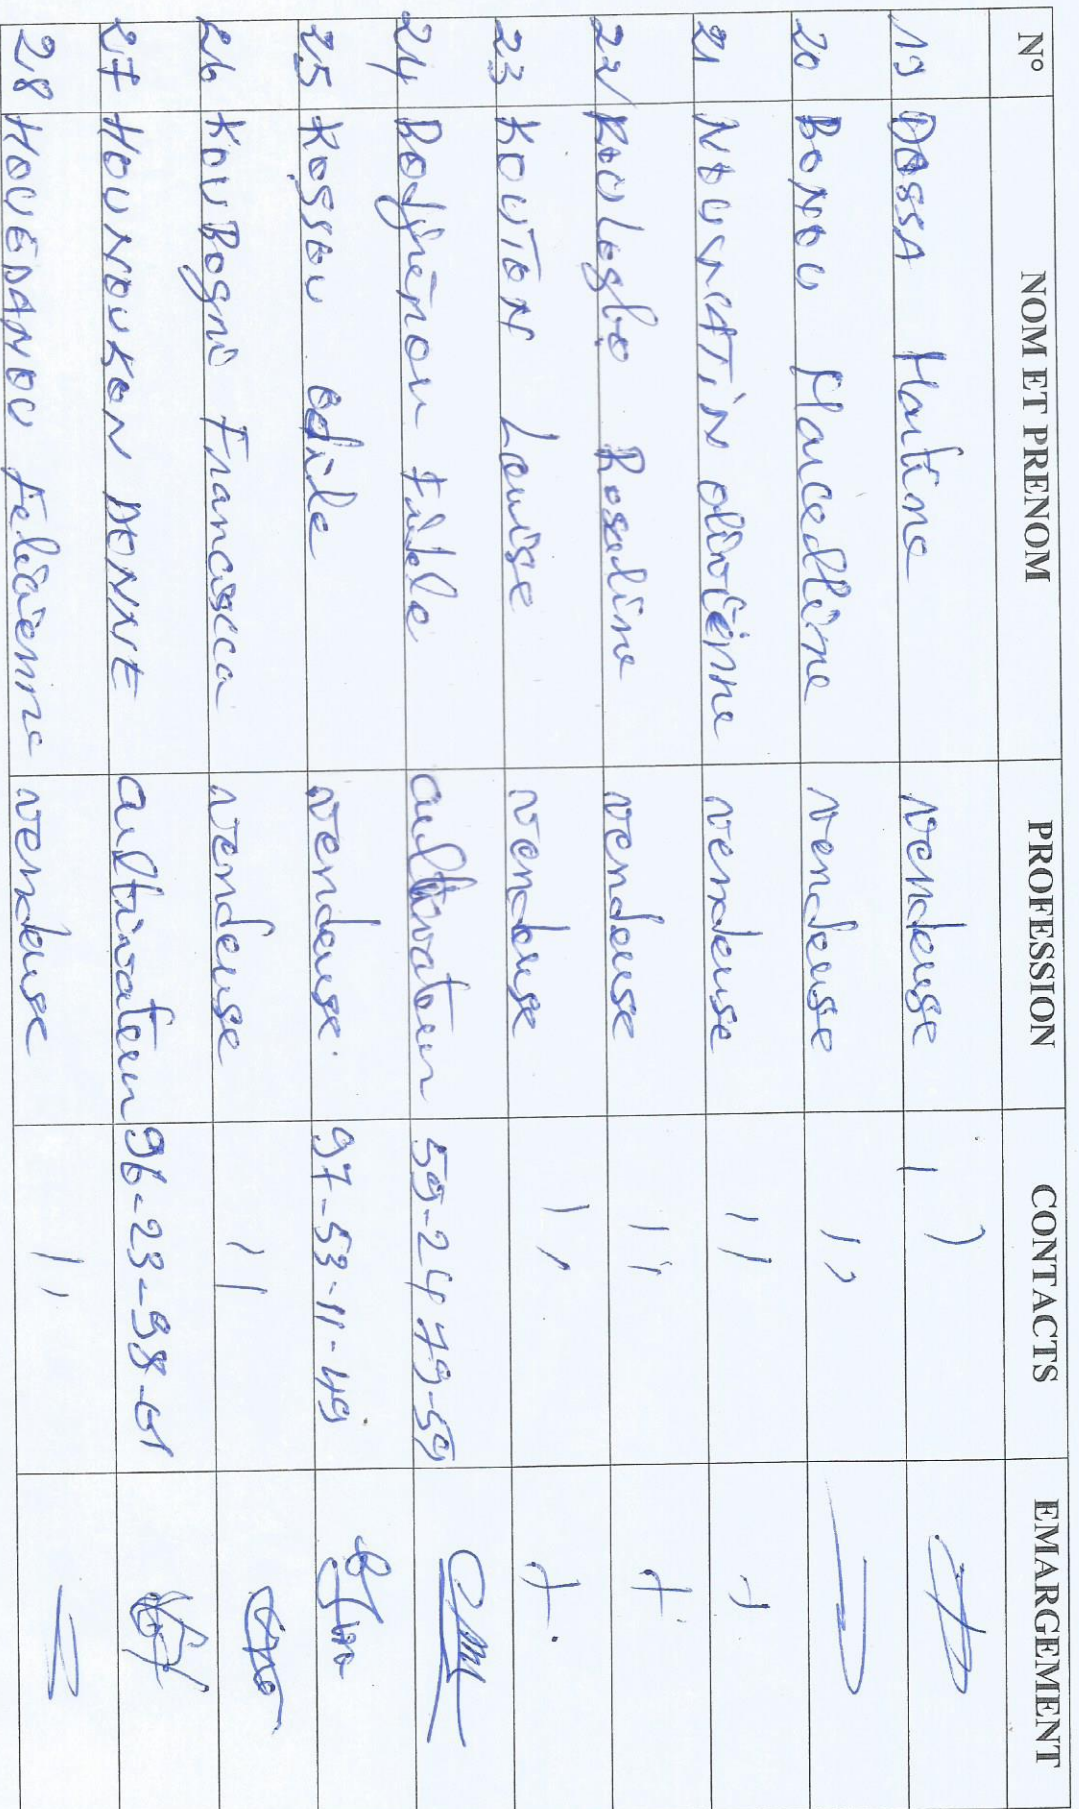 N° NOM ET PRENOM PROFESSION CONTACTS EMARGEMENT
19 DOSSA Martine vendeuse ''
20 BONOU Marcelline vendeuse ''
21 vendeuse ''
22 Roseline vendeuse ''
23 KOUTON Louise vendeuse ''
24 Bodjrènou Fidèle cultivateur 59-24 79-59
25 Kossou odile vendeuse. 97-53-11-49
26 KouBogni Francisca vendeuse ''
27 HOUNOUKON DONNE cultivateur 96-23-98-61
28 HOUÉDANOU Feliciènne vendeuse ''